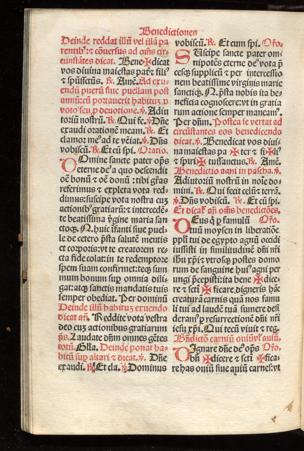 Benedictiones
Deinde reddat illũ vel illã pa
rentib⁹: ⁊ cõuersus ad oẽs circũ
stãtes dicat. Bene✠dicat
vos diuina maiestas pat̃: fili⁹
⁊ spũssctũs. ℟. Amẽ. Ad exu
endũ puerũ siue puellam post
annũ cõpletũ portauerit habitũ. p̃
voto seu p̃ deuotione. ℣. Adiu
toriũ nostrũ. ℟. Qui fe. ℣. Dñe
exaudi orationẽ meam. ℟. Et
clamor me⁹ ad te veiat. ℣. Dñs
vobiscũ. ℟. Et cũ spi. Oratio.
Omine sancte pater oĩps
eterne de⁹ a quo descendit
oẽ bonũ ⁊ oẽ donũ: tibi grãs
referimus ⁊ expleta vota red-
dimus: suscipe vota nostra cuz
actionib⁹ gratiarũ: ⁊ interceden-
te beatissima v̓gine maria san
ctoq;. N. huic infanti siue puel
le de cetero p̃sta salutẽ mentis
⁊ corporis: vt te creatorem re-
cta fide colat: in te redemptore
spem suam confirmet: teq; sum
mum bonum sup omnia dili-
gat: atq; sanctis mandatis tuis
semper obediat. Per dominũ
Deinde illũ habitũ exuendo
dicat añ. Reddite vota vestra
deo cuz actionibus gratiarum
ps. Laudate dñm omnes gẽtes
totũ. Gl̃ia. Deinde ponat ha-
bitũ sup altari ⁊ dicat. ℣. Dñe
exaudi. ℟. Et cla. ℣. Dominus
vobiscũ. ℟. Et cum spi. Oro.
Suscipe sancte pater omi
nipotẽs eterne de⁹ vota p̃
ces supplicũ ⁊ per intercessio
nem beatissime virginis marie
sanctiq;. N. p̃sta nobis ita be-
neficia cognoscere: vt in gratia
rum actione semper maneam⁹.
Per dñm. Postea se vertat ad
circũstantes eos benedicendo
dicat. ℣. Benedicat vos diui-
na maiestas pa✠ter ⁊ fi✠li⁹
⁊ spiri✠tussanctus. ℟. Amẽ.
Benedictio agni in pascha. ℣.
Adiutoriũ nostrũ in noĩe do-
mini. ℟. Qui fecit celũ ⁊ terrã.
℣. Dñs vobiscũ. ℟. Et cũ spi.
Deus q̃ p̃ famulũ Oro.
tuũ moysen in liberatiõe
ppl̃i tui de egypto agnũ occidi
iussisti in similitudinẽ dñi nr̃i
iesu xpi: ⁊ vtrosq; postes domo
rum de sanguine hui⁹ agni per
ungi p̃cepisti: ita bene✠dice-
re ⁊ scti✠ficare digneris hãc
creaturã carnis quã nos famu
li tui ad laudẽ tuã sumere desi
deram⁹ p̃ resurrectionẽ dñi nr̃i
iesu xpi. Qui tecũ viuit ⁊ reg.
Dignare dñe de⁹ oĩps Oro.
bñ✠dicere ⁊ scti✠fica-
re has oues siue quis carnes: vt